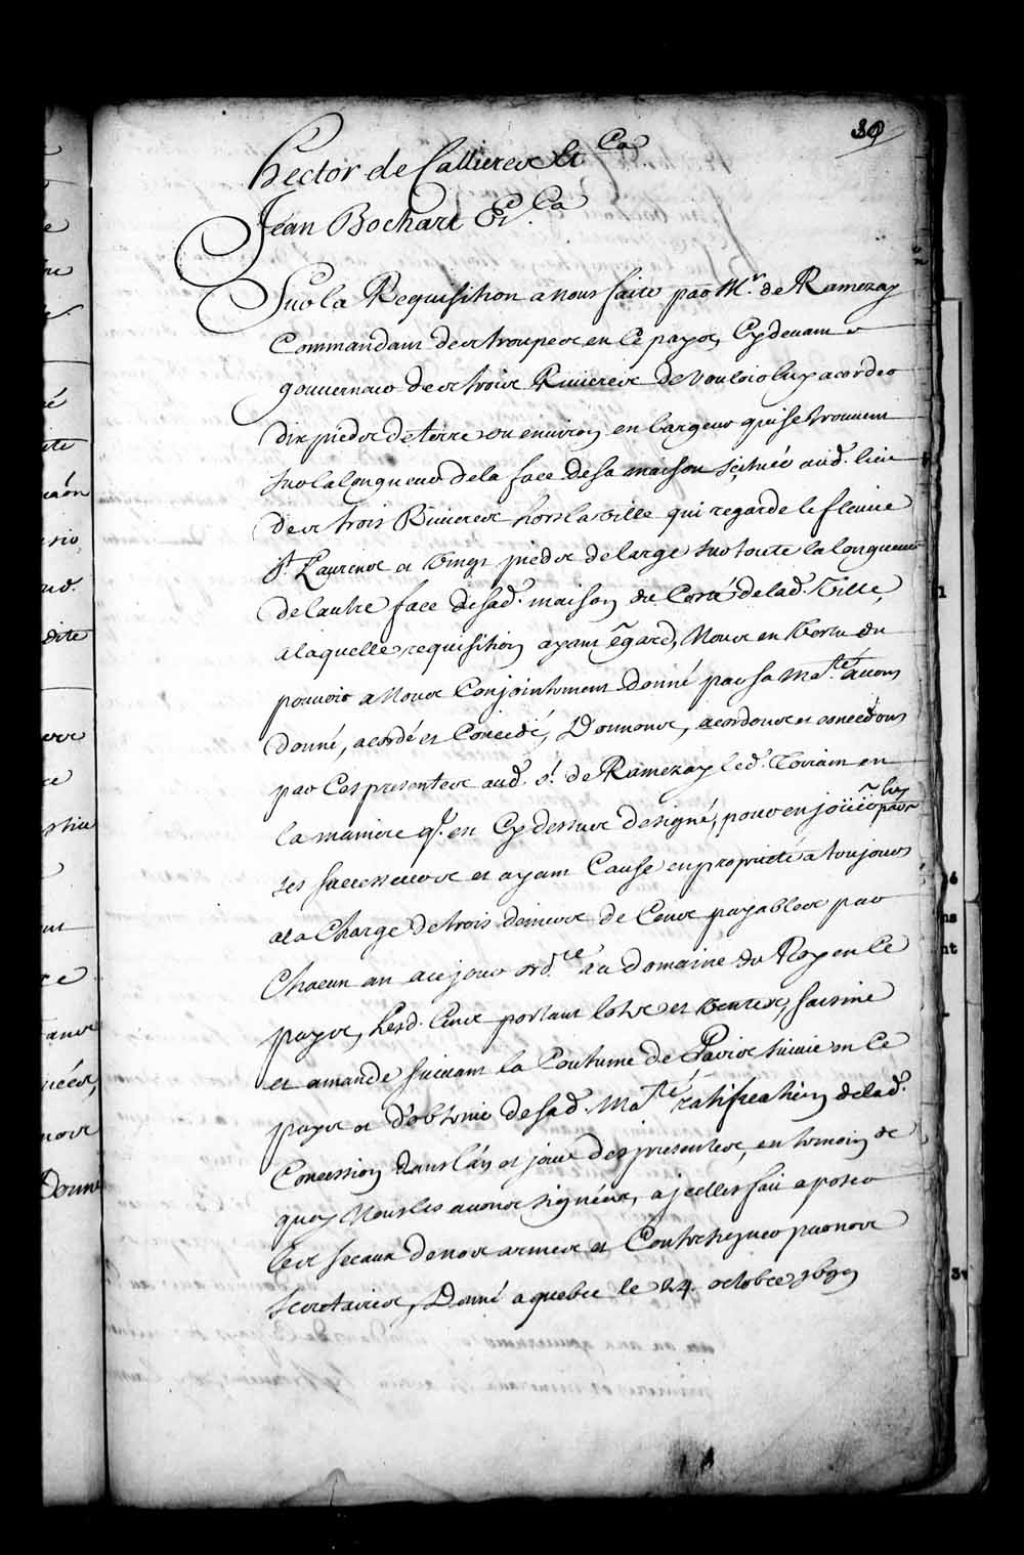 39
hector de Callieres Et Ca
Jean Bochart Et Ca
Sur la Requisition a nous faite par Mr. de Ramezay
Commandant des troupes en Ce payx, Cy devant
gouverneur des trois Rivieres de vouloir luy acorder
dix pieds de terre ou environ en largeur qui se trouvent
sur la longueur de la face de sa maison scituée aud. lieu
des trois Rivieres hors la ville qui regarde le fleuve
St. Laurens et vingt pieds de large sur toute la longueur
de l'autre face de sad. maison du Costé de lad. Ville,
a laquelle requisition ayant egard, Nous en Vertu du
pouvoir a Nous Conjointement Donné par sa Maté. avons
donné, acordé et Concédé, Donnons, acordons et concedons
par Ces presentes aud. sr. de Ramezay led. Terrain en
la maniere q. est Cy dessus designé, pour en joüir luy par
ses successeurs et ayant Cause en proprieté a toujours
a la Charge de trois deniers de Cens payables par
Chacun an a ce jour ordre au Domaine du Roy en Ce
payx, Lesd. Cens portant lots et Ventes, saisine
et amande suivant la Coutume de Paris suivie en Ce
payx et d'obtenir de sad. Maté ratification de lad.
Concession dans l'an et jour des presentes, en temoin de
quoy Nous les avons signées, a jcelles fait aposer
les sceaux de nos armes et Contresigner par nos
secretaires, Donné a quebec le 24. octobre 1699